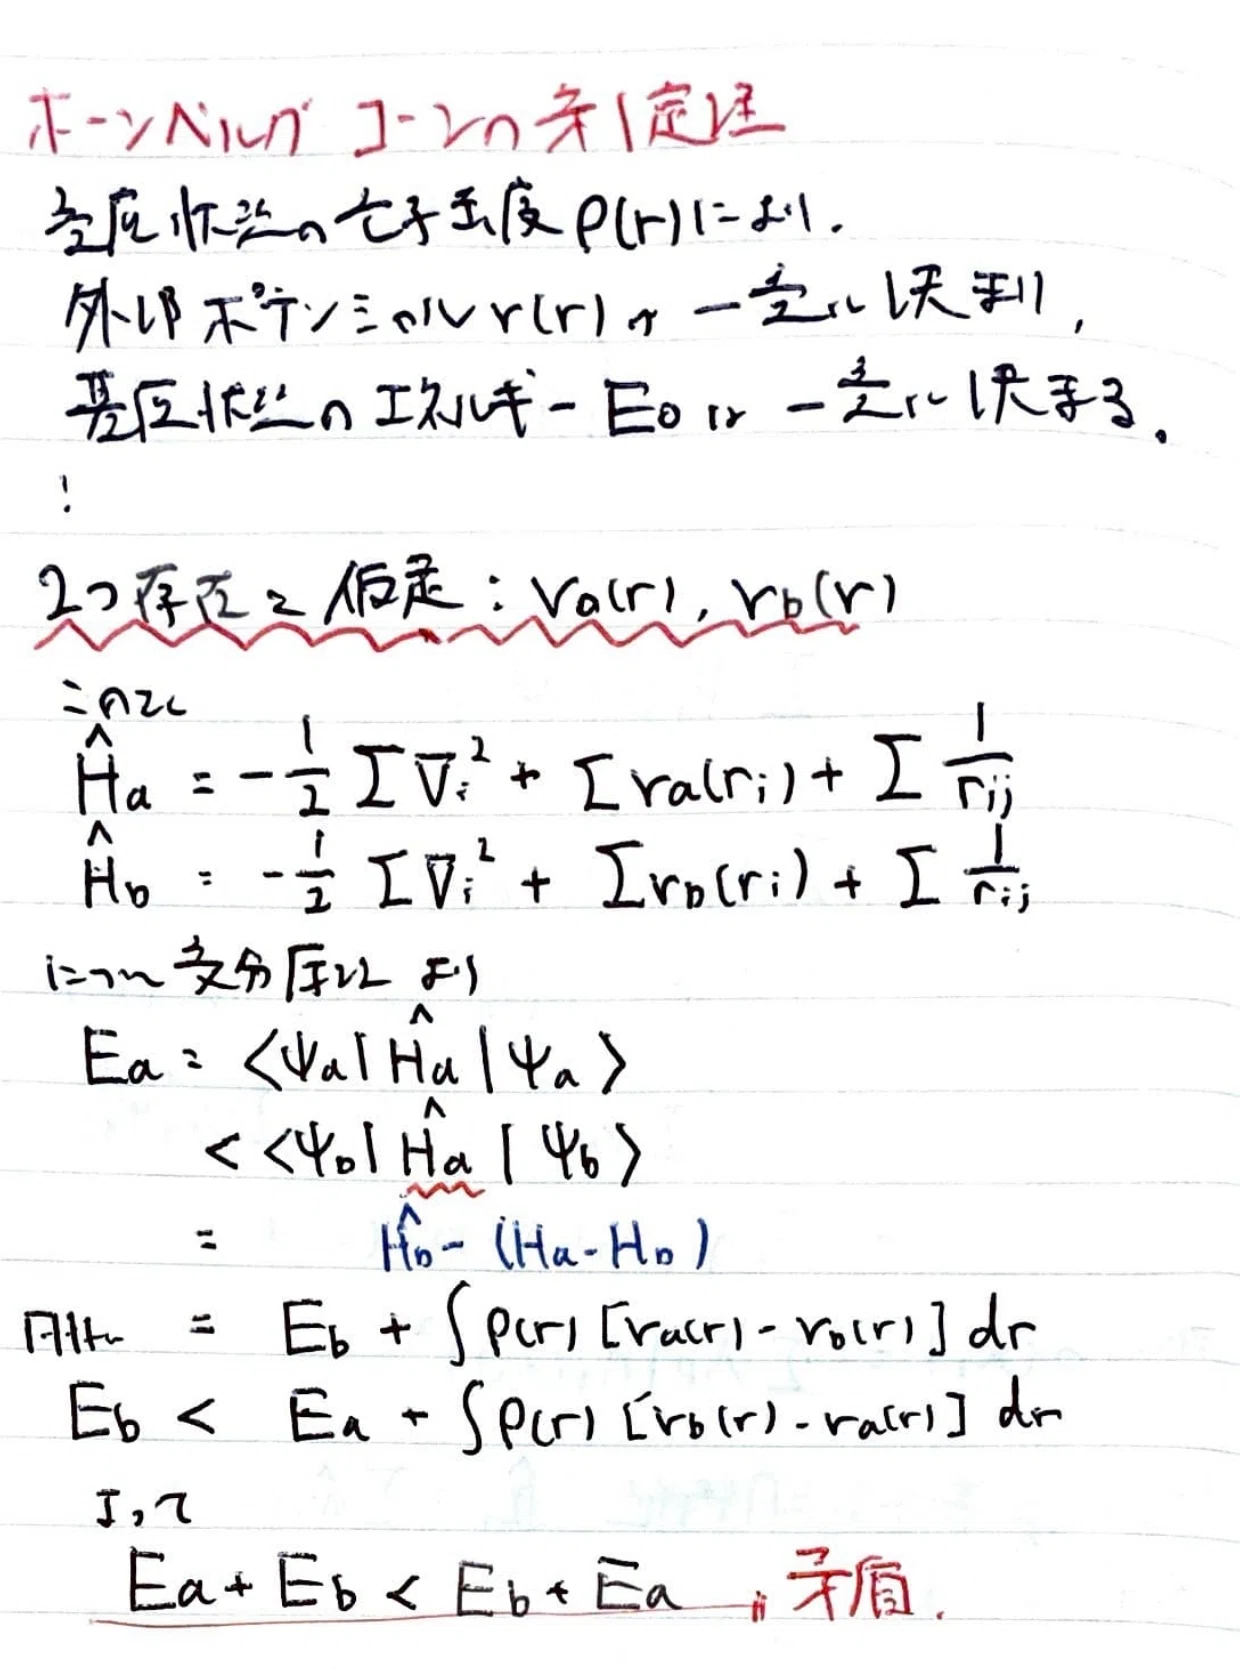 ホーンベルグ コーンの第1定理
基底状態の電子密度 ρ(r)により.
外部ポテンシャル v(r) が 一意に決まり,
基底状態のエネルギー E0 は 一意に決まる.
:
2つ存在と仮定 : va(r), vb(r)
このとき
Ĥa = -1/2 Σ∇i² + Σva(ri) + Σ 1/rij
Ĥb = -1/2 Σ∇i² + Σvb(ri) + Σ 1/rij
について変分原理 より
Ea = <ψa|Ĥa|ψa>
< <ψb|Ĥa|ψb>
= Ĥb - (Ha-Hb)
同様に = Eb + ∫ρ(r) [va(r) - vb(r)] dr
Eb < Ea + ∫ρ(r) [vb(r) - va(r)] dr
よって
Ea + Eb < Eb + Ea 〃 矛盾.